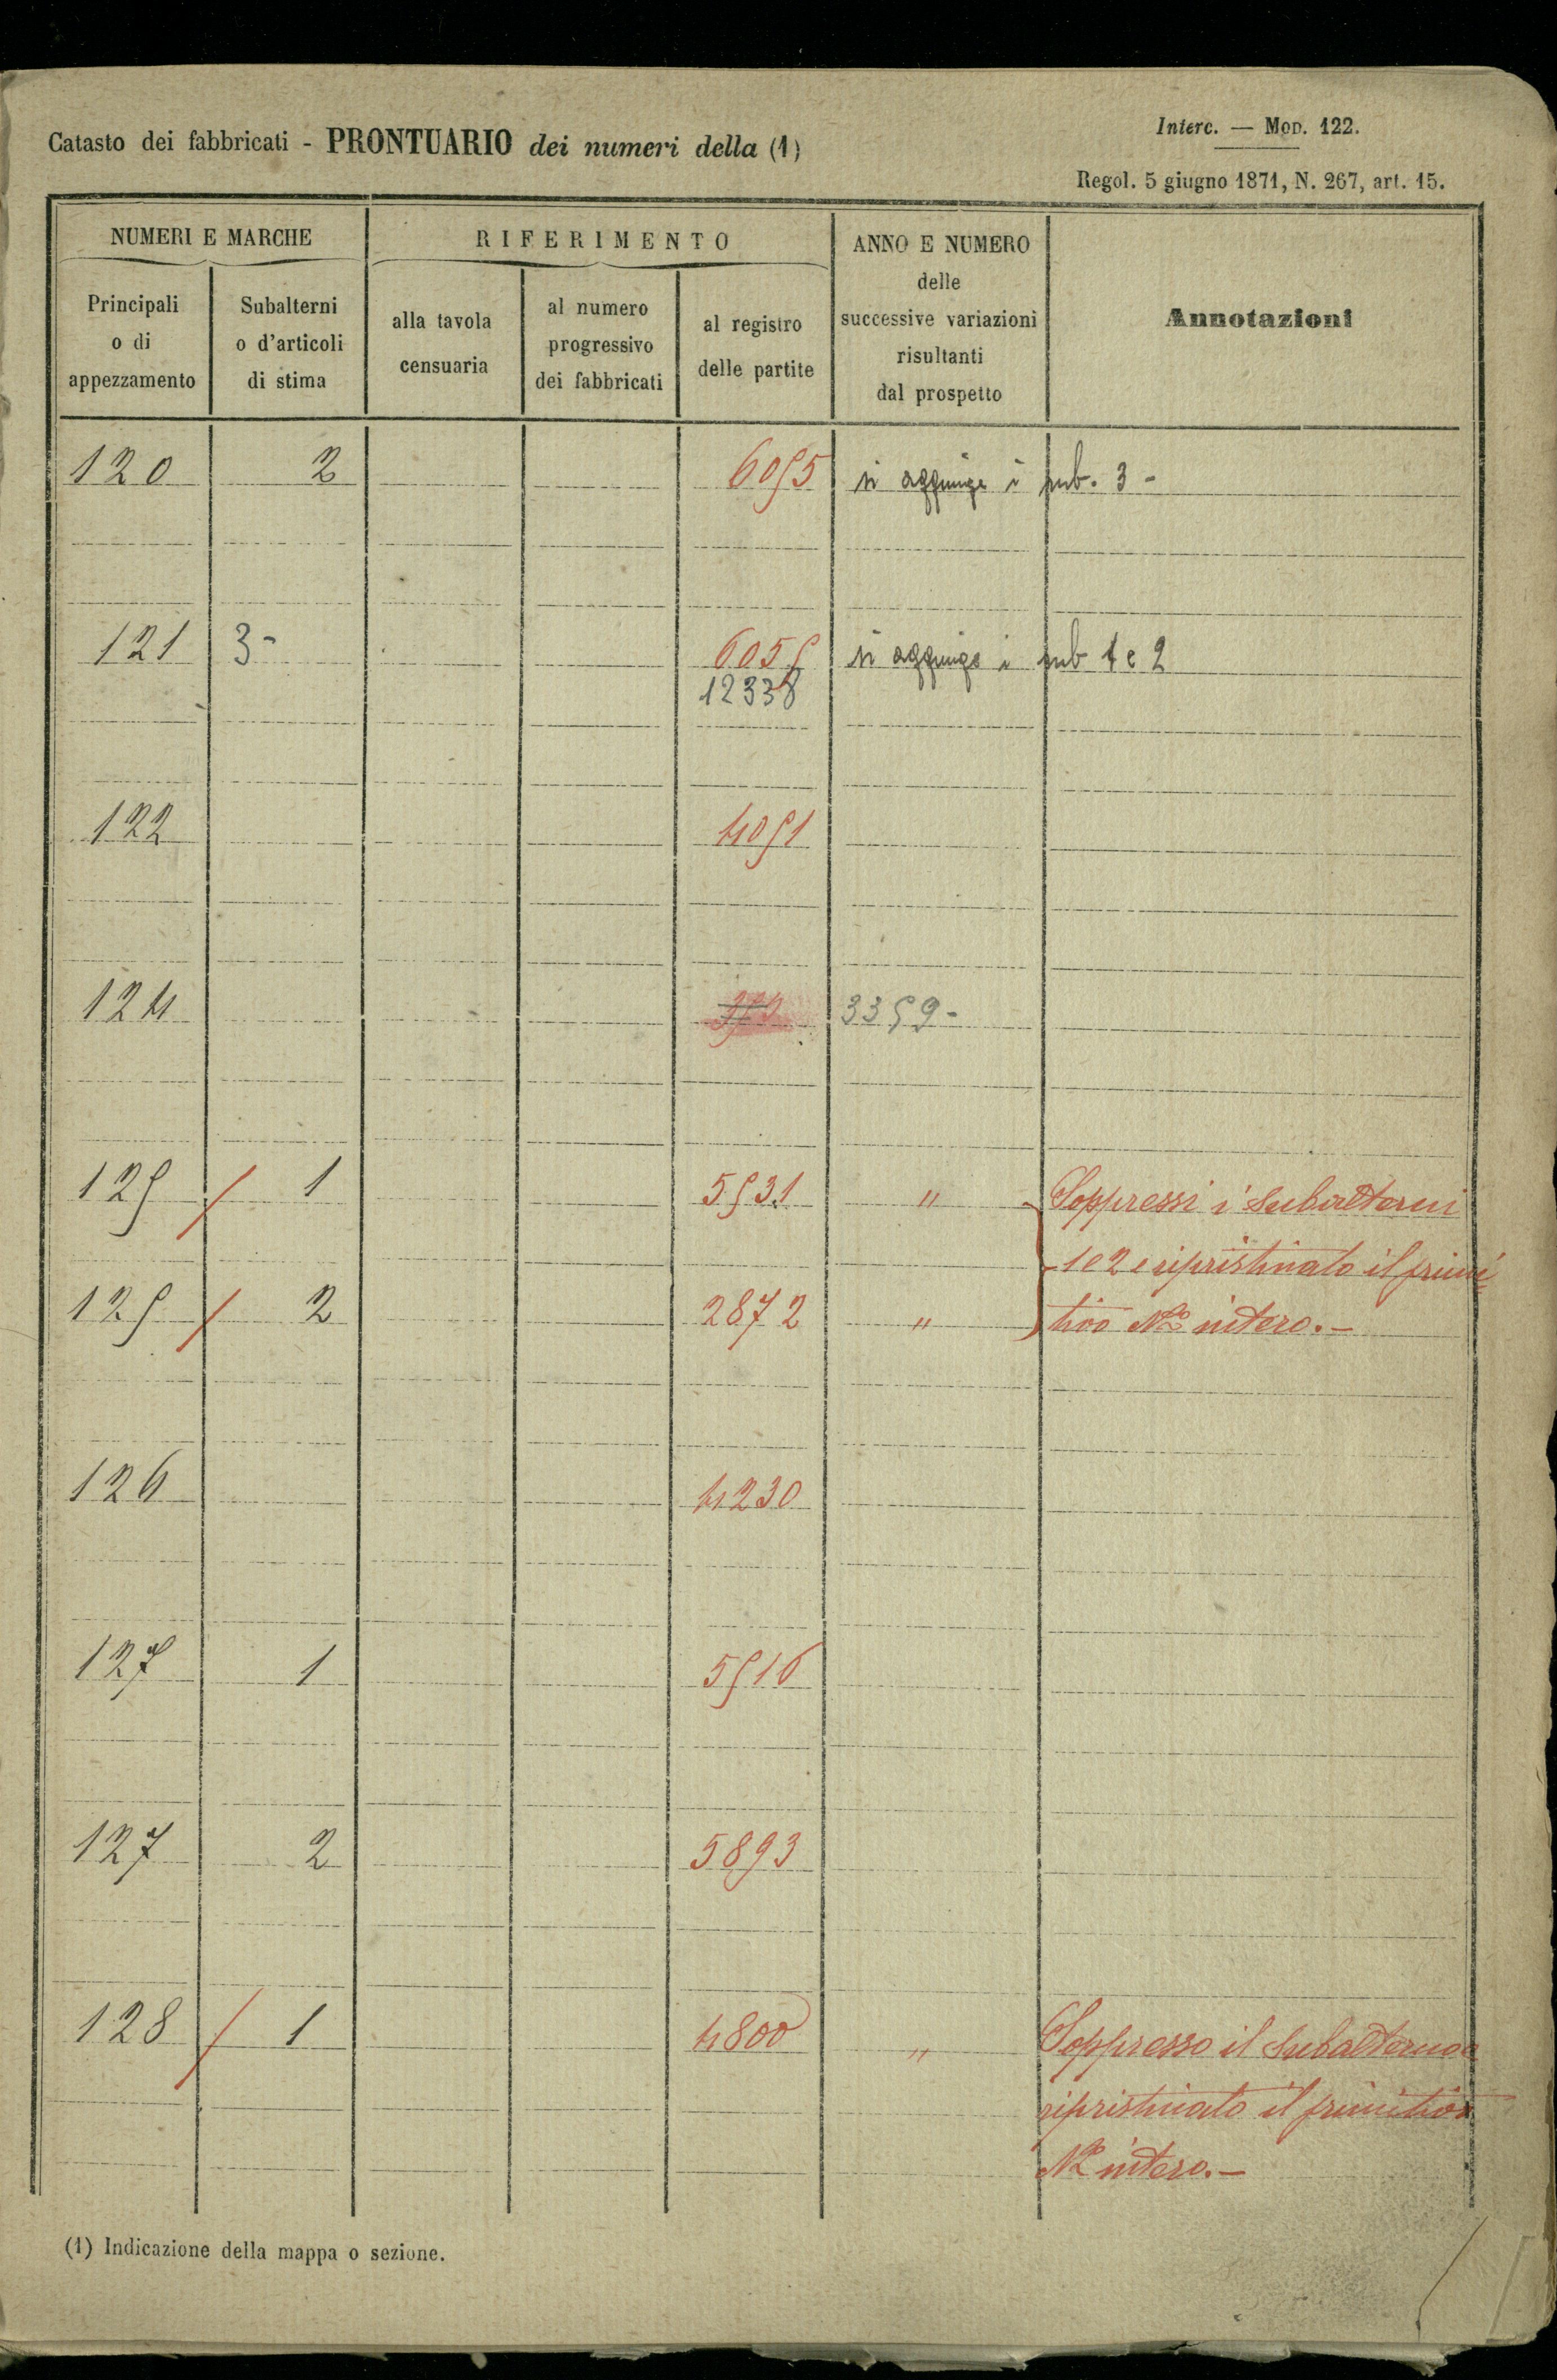 Catasto dei fabbricati - PRONTUARIO dei numeri della (1)
Interc. — Mod. 122.
Regol. 5 giugno 1871, N. 267, art. 15.
NUMERI E MARCHE
RIFERIMENTO
ANNO E NUMERO
delle
successive variazioni
risultanti
dal prospetto
Annotazioni
Principali
o di
appezzamento
Subalterni
o d'articoli
di stima
alla tavola
censuaria
al numero
progressivo
dei fabbricati
al registro
delle partite
120 2 6055 si aggiunge i sub. 3 -
121 3- 6055 si aggiunge i sub 1 e 2
12338
122 4051
124 3359-
125 / 1 5531 " Soppressi i Subalterni
1 e 2 e ripristinato il primi
125 / 2 2872 " tivo No intero.-
126 4230
127 1 5516
127 2 5893
128 / 1 4800 " Soppresso il Subalterno e
ripristinato il primitivo
No intero.-
(1) Indicazione della mappa o sezione.